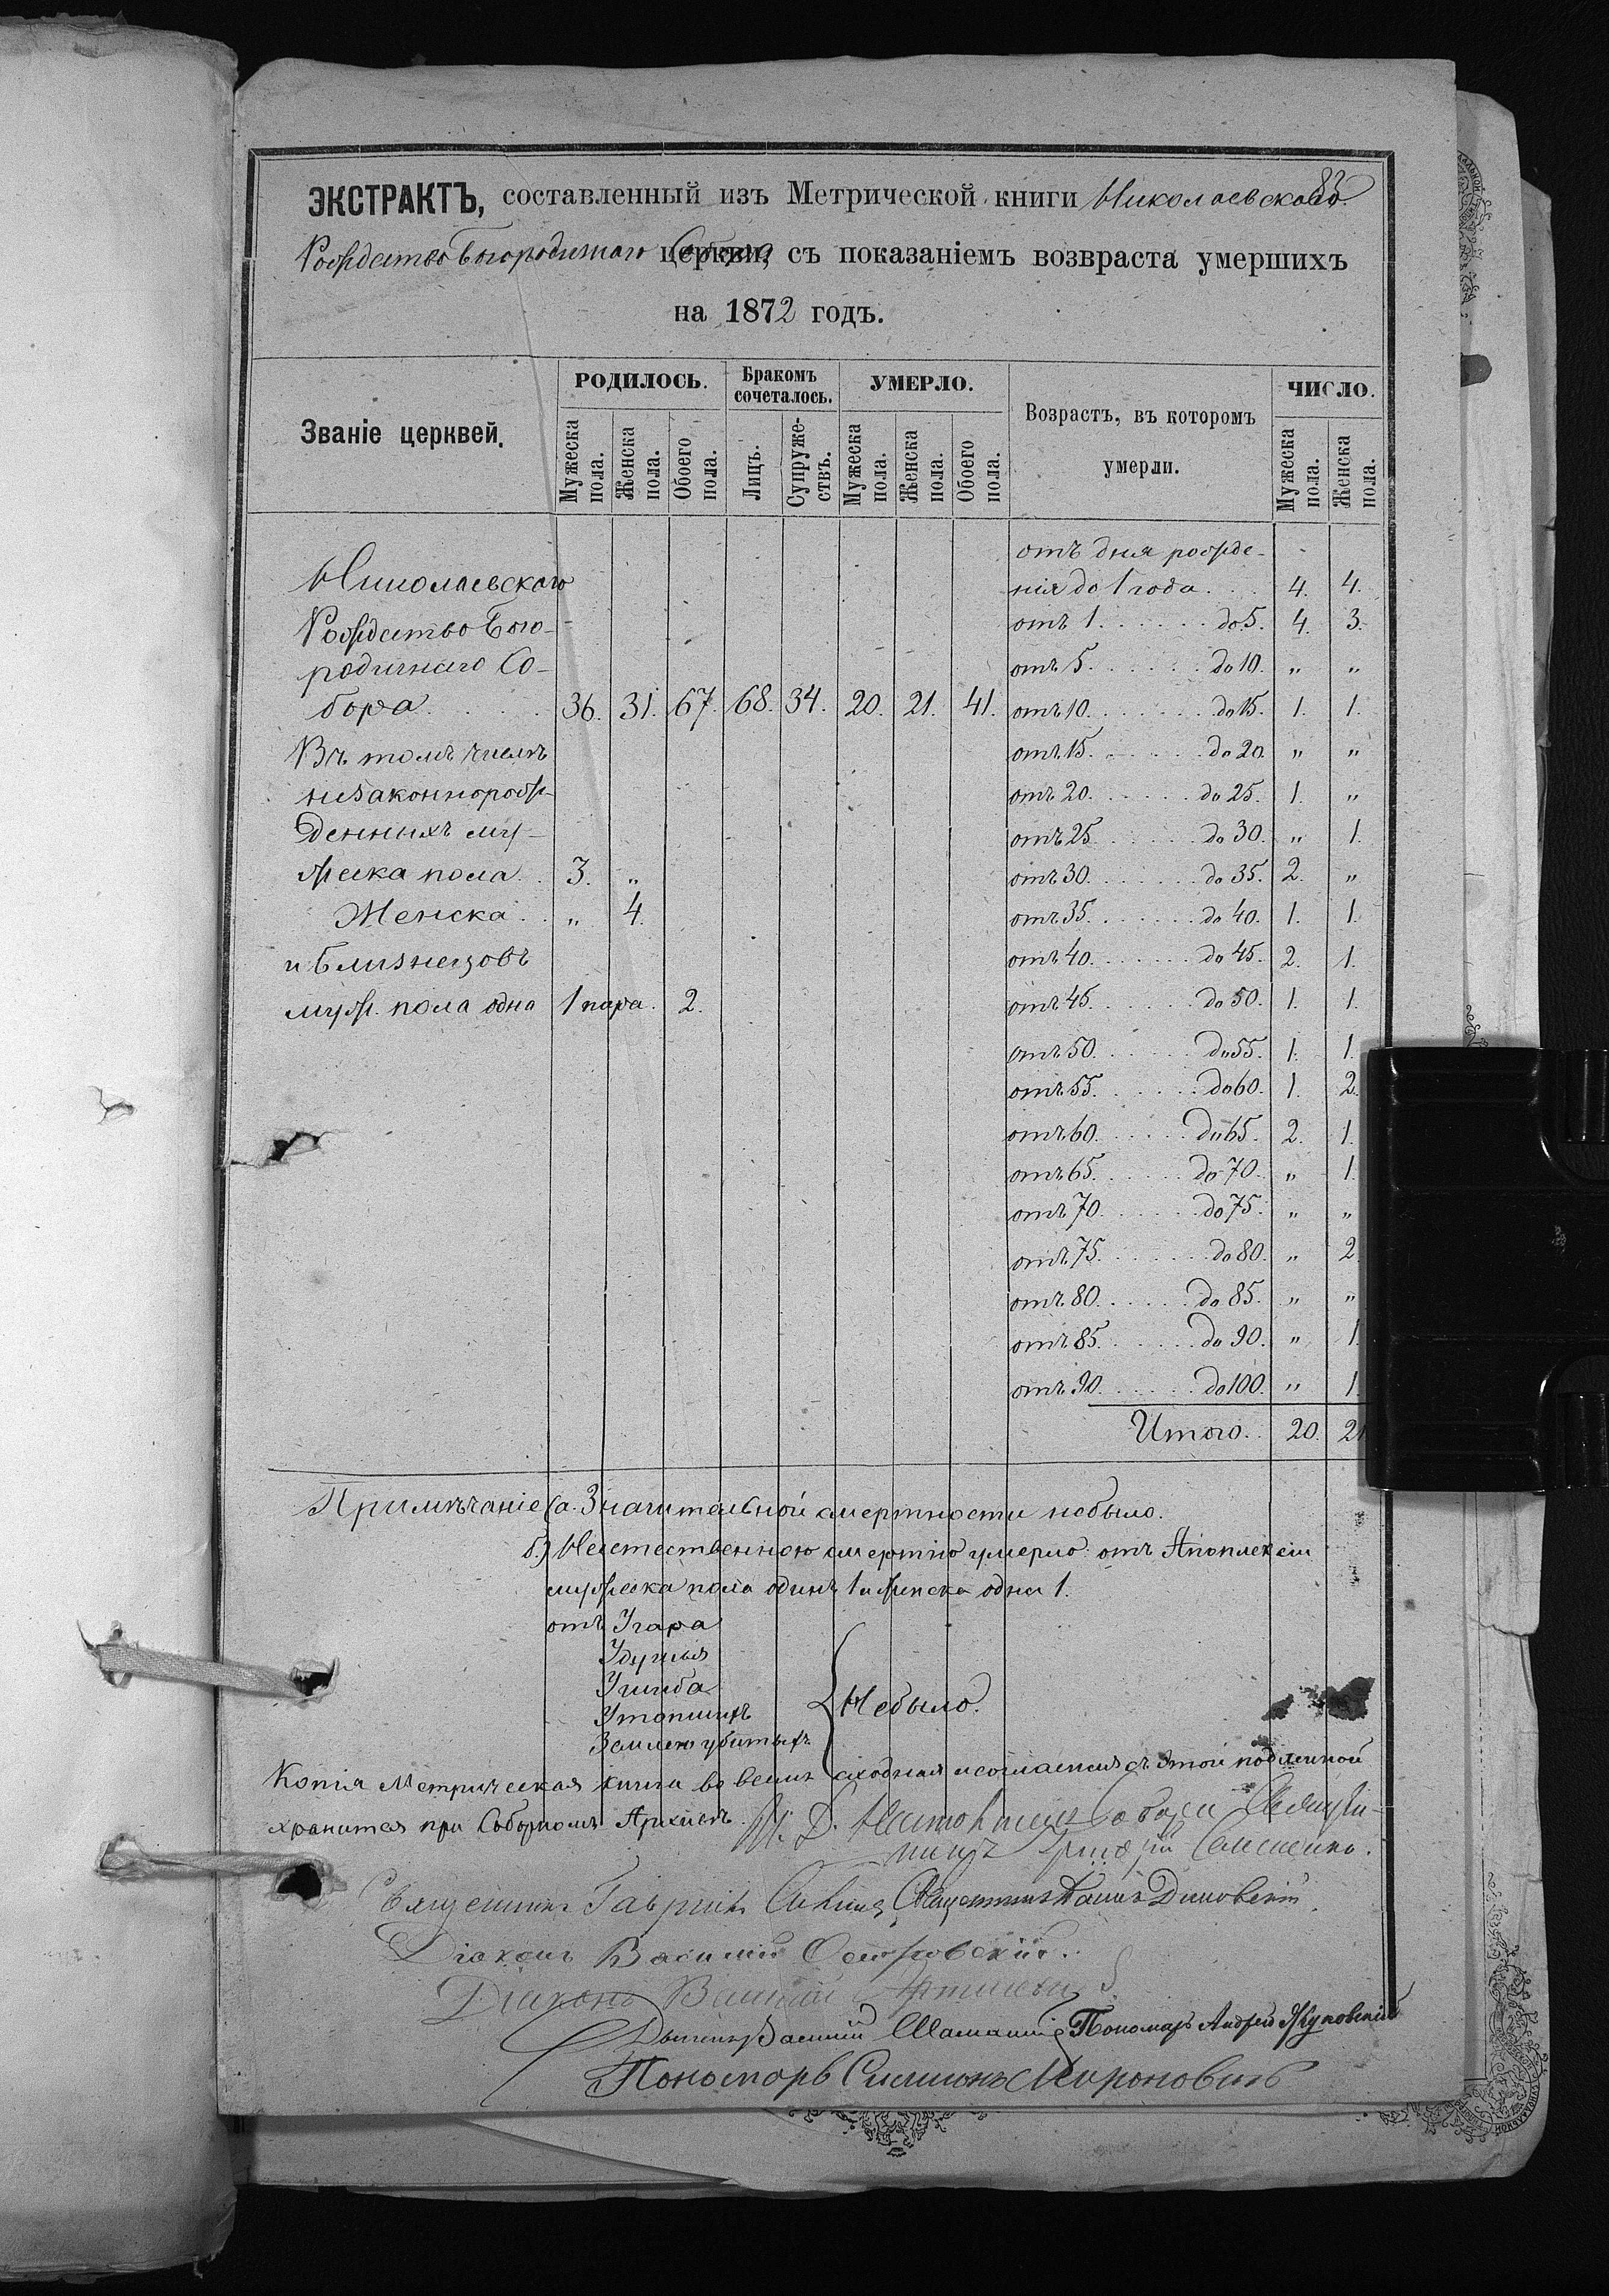 83
ЭКСТРАКТЪ, составленный изъ Метрической книги Николаевскаго
Рождество Богородичнаго Собора церкви, съ показаніемъ возвраста умершихъ
на 1872 годъ.
Званіе церквей.
РОДИЛОСЬ.
Бракомъ сочеталось.
УМЕРЛО.
Возрастъ, въ которомъ умерли.
ЧИСЛО.
Мужеска пола.
Женска пола.
Обоего пола.
Лицъ.
Супружествъ.
Мужеска пола.
Женска пола.
Обоего пола.
Мужеска пола.
Женска пола.
Николаевскаго
Рождество Бого-
родичнаго Со-
бора . . . 36. 31. 67. 68. 34. 20. 21. 41.
Въ томъ числѣ
незаконнорож-
денныхъ му-
жеска пола . 3. „
Женска . . „ 4.
и близнецовъ
муж. пола одна 1 пара. 2.
отъ дня рожде-
нія до 1 года . . . 4. 4.
отъ 1. . . . . . до 5. 4. 3.
отъ 5. . . . . . до 10. „ „
отъ 10. . . . . . до 15. 1. 1.
отъ 15. . . . . . до 20. „ „
отъ 20. . . . . . до 25. 1. „
отъ 25 . . . . . до 30. „ 1.
отъ 30. . . . . . до 35. 2. „
отъ 35. . . . . . до 40. 1. 1.
отъ 40. . . . . . до 45. 2. 1.
отъ 45. . . . . . до 50. 1. 1.
отъ 50. . . . . . до 55. 1. 1.
отъ 55. . . . . . до 60. 1. 2.
отъ 60. . . . . . до 65. 2. 1.
отъ 65. . . . . . до 70. „ 1.
отъ 70. . . . . . до 75. „ „
отъ 75. . . . . . до 80. „ 2.
отъ 80. . . . . . до 85. „ „
отъ 85. . . . . . до 90. „ 1.
отъ 90. . . . . . до 100. „ 1.
Итого. . 20. 21
Примѣчаніе (а. Значительной смертности небыло.
б.) Неестественною смертію умерло: отъ Апоплексіи
мужеска пола одинъ 1 и женска одна 1.
отъ Угара
Удушья
Ушиба
Утопшихъ
Землею убитыхъ
Небыло.
Копія Метрическая книги во всемъ сходная и согласная съ этой подленной
хранится при Соборномъ Архивѣ.
И. Д. Настоятеля Собора Священ-
никъ Григорій
Священникъ Гавріилъ Священникъ
Діаконъ Василій Островскій.
Діаконъ Василій
Василій Пономарь Андрей Жуковскій
Пономарь Симеонъ Мироновичъ